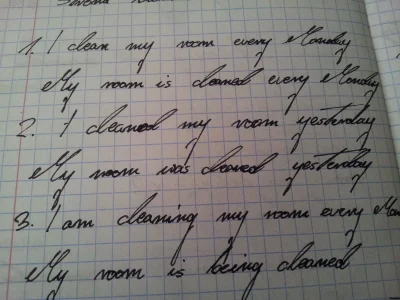 1. I clean my room every Monday
My room is cleaned every Monday
2. I cleaned my room yesterday
My room was cleaned yesterday
3. I am cleaning my room every Mon
My room is being cleaned